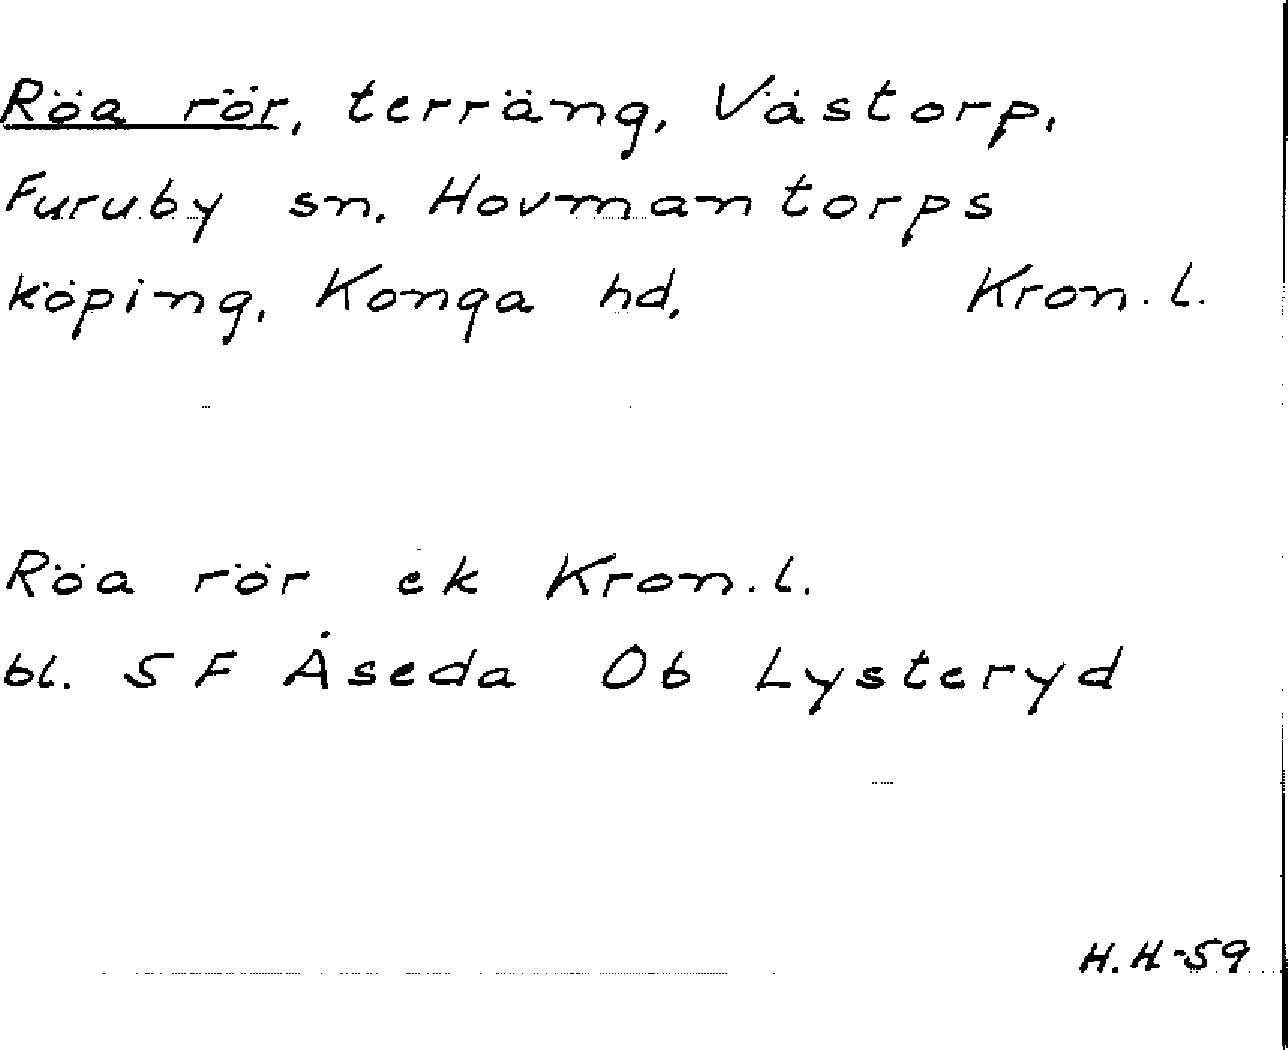 Röa rör, terräng, Västorp,
Furuby sn. Hovmantorps
köping, Konga hd, Kron. l.
Röa rör ek Kron. l.
bl. 5 F Åseda Ob Lysteryd
H. H-59